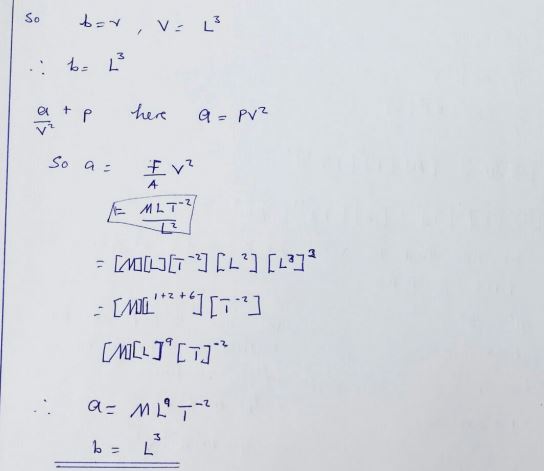 So b=v, V= L³
∴ b= L³
a/V² + P here a = PV²
So a= F/A V²
= MLT⁻²/L²
= [M][L][T⁻²][L²][L³]²
= [M][L¹⁺²⁺⁶][T⁻²]
[M][L]⁹[T]⁻²
∴ a= ML⁹T⁻²
b= L³